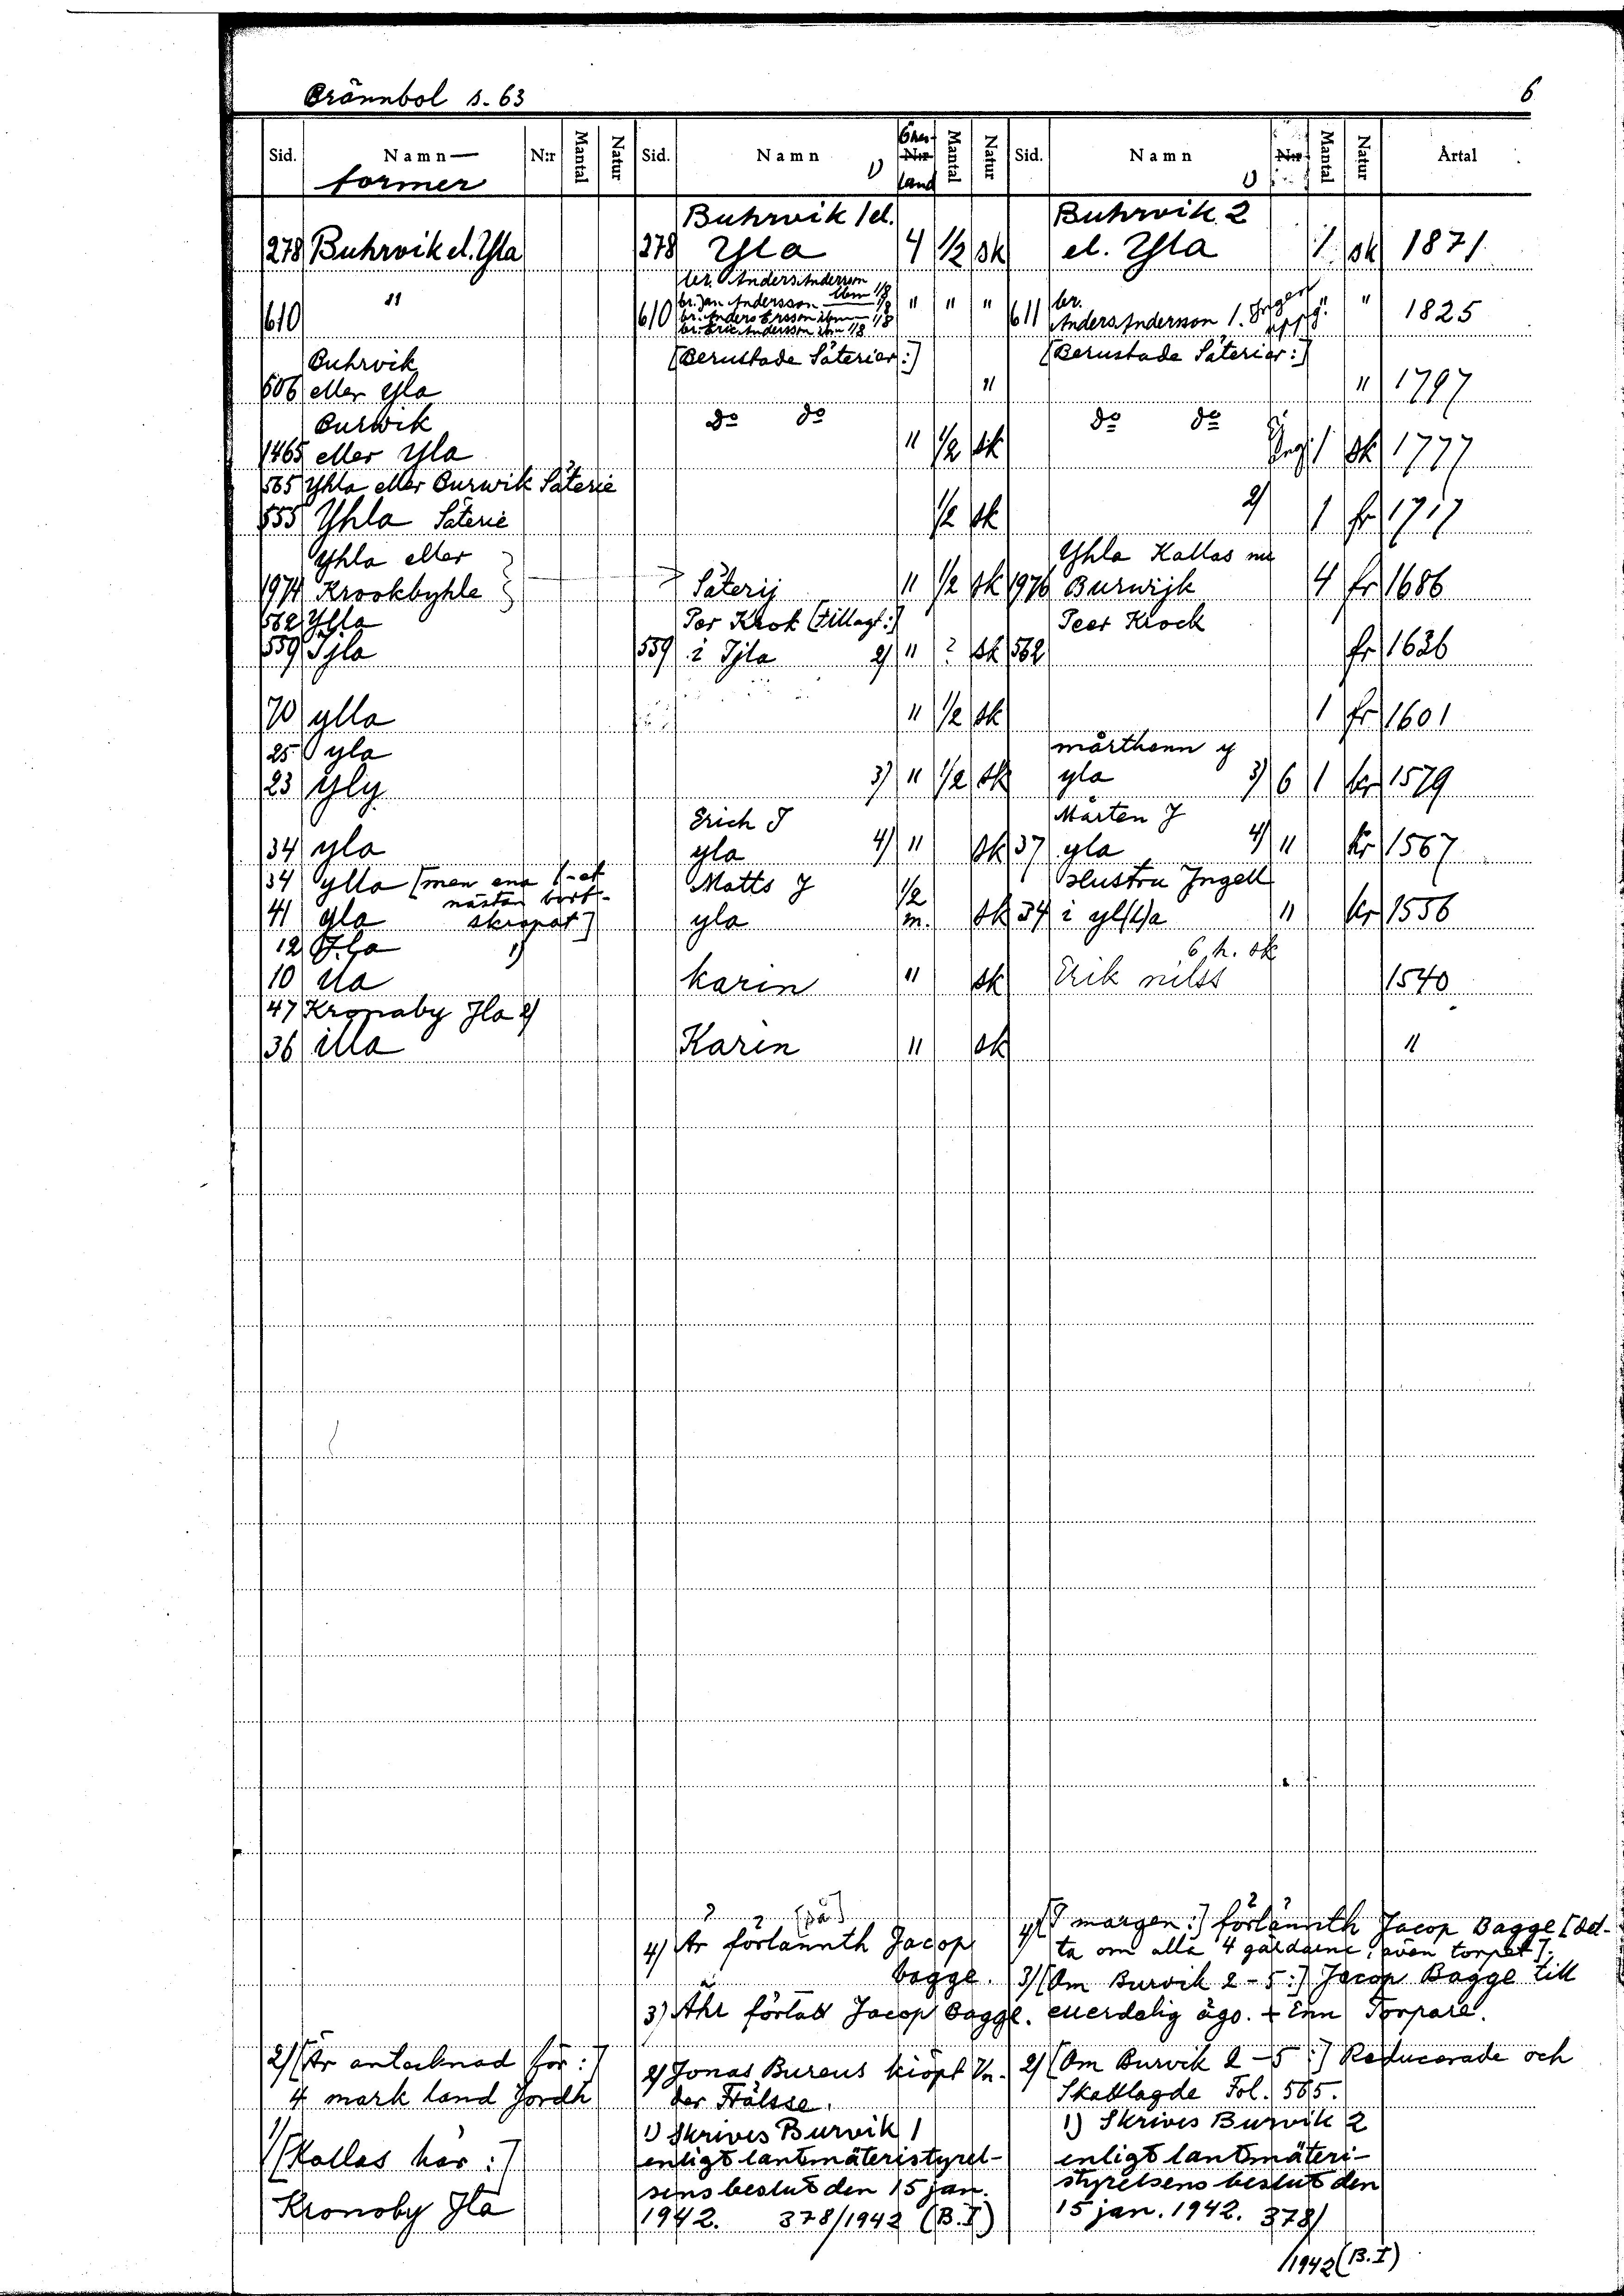 Brännbol s. 63
6
Sid. Namn- N:r Mantal Natur Sid. Namn Nr Mantal Natur Sid. Namn Nr Mantal Natur Årtal
former 1) land 1)
Buhrvik 1 el. Buhrvik 2
278 Buhrvik el. Yla 278 Yla 4 1/2 sk el. Yla 1 sk 1871
br. Anders Anderson
br. Jan Andersson ibm 1/8
610 " 610 br. Anders Ersson ibm 1/8 " " " 611 br. Anders Anderson 1. " 1825
br. Eric Andersson ibm 1/8
Buhrvik [Berustade Säterier:] [Berustade Säterier:]
606 eller Yla " " 1797
Burwik do do do do
1465 eller Yla " 1/2 sk 1 sk 1777
565 Yhla eller Burwik Säterie
555 Yhla Säterie 1/2 sk 2) 1 fr 1717
Yhla eller Yhla Kallas nu
1974 Krookbyhle Säterij " 1/2 sk 1976 Burwijk 4 fr 1686
562 Ylla Per Krok [Tillagt:] Peer Krock
559 Ijla 559 i Ijla 2) " ? sk 562 fr 1636
70 ylla " 1/2 sk 1 fr 1601
25 yla mårthenn y
23 Yly 3) " 1/2 sk yla 3) 6 1 kr 1579
Erich J Mårten J
34 yla yla 4) " sk 37 yla 4) " kr 1567
34 ylla [men ena l-et Matts J 1/2 Hustru Ingell
nästan bort-
41 yla skrapat] yla m. sk 34 i yl(l)a " kr 1556
12 1) 6 h. sk
10 ila karin " sk Erik nilss 1540
47 Kronaby Jla 2)
36 illa Karin " sk "
? ? [på] ? ?
4) Är förlännth Jacop bagge.
4) [I margen:] förlännth Jacop Bagge [det-
ta om alla 4 gårdarne, även torpet].
3) [Om Burvik 2-5:] Jacop Bagge till
3) Ähr förlatt Jacop bagge. euerdelig ägo. + Enn Torpare.
2) [Är antecknad för:]
4 mark land Jordh
2) Jonas Bureus kiöpt Vn-
der Frälsse.
2) [Om Burvik 2-5:] Reducerade och
Skattlagde Fol. 565.
1) [Kallas här:]
Kronoby Jla
1) Skrives Burvik 1
enligt lantmäteristyrel-
sens beslut den 15 jan.
1942. 378/1942 (B.I)
1) Skrives Burvik 2
enligt lantmäteri-
styrelsens beslut den
15 jan. 1942. 378/
/1942 (B.I)